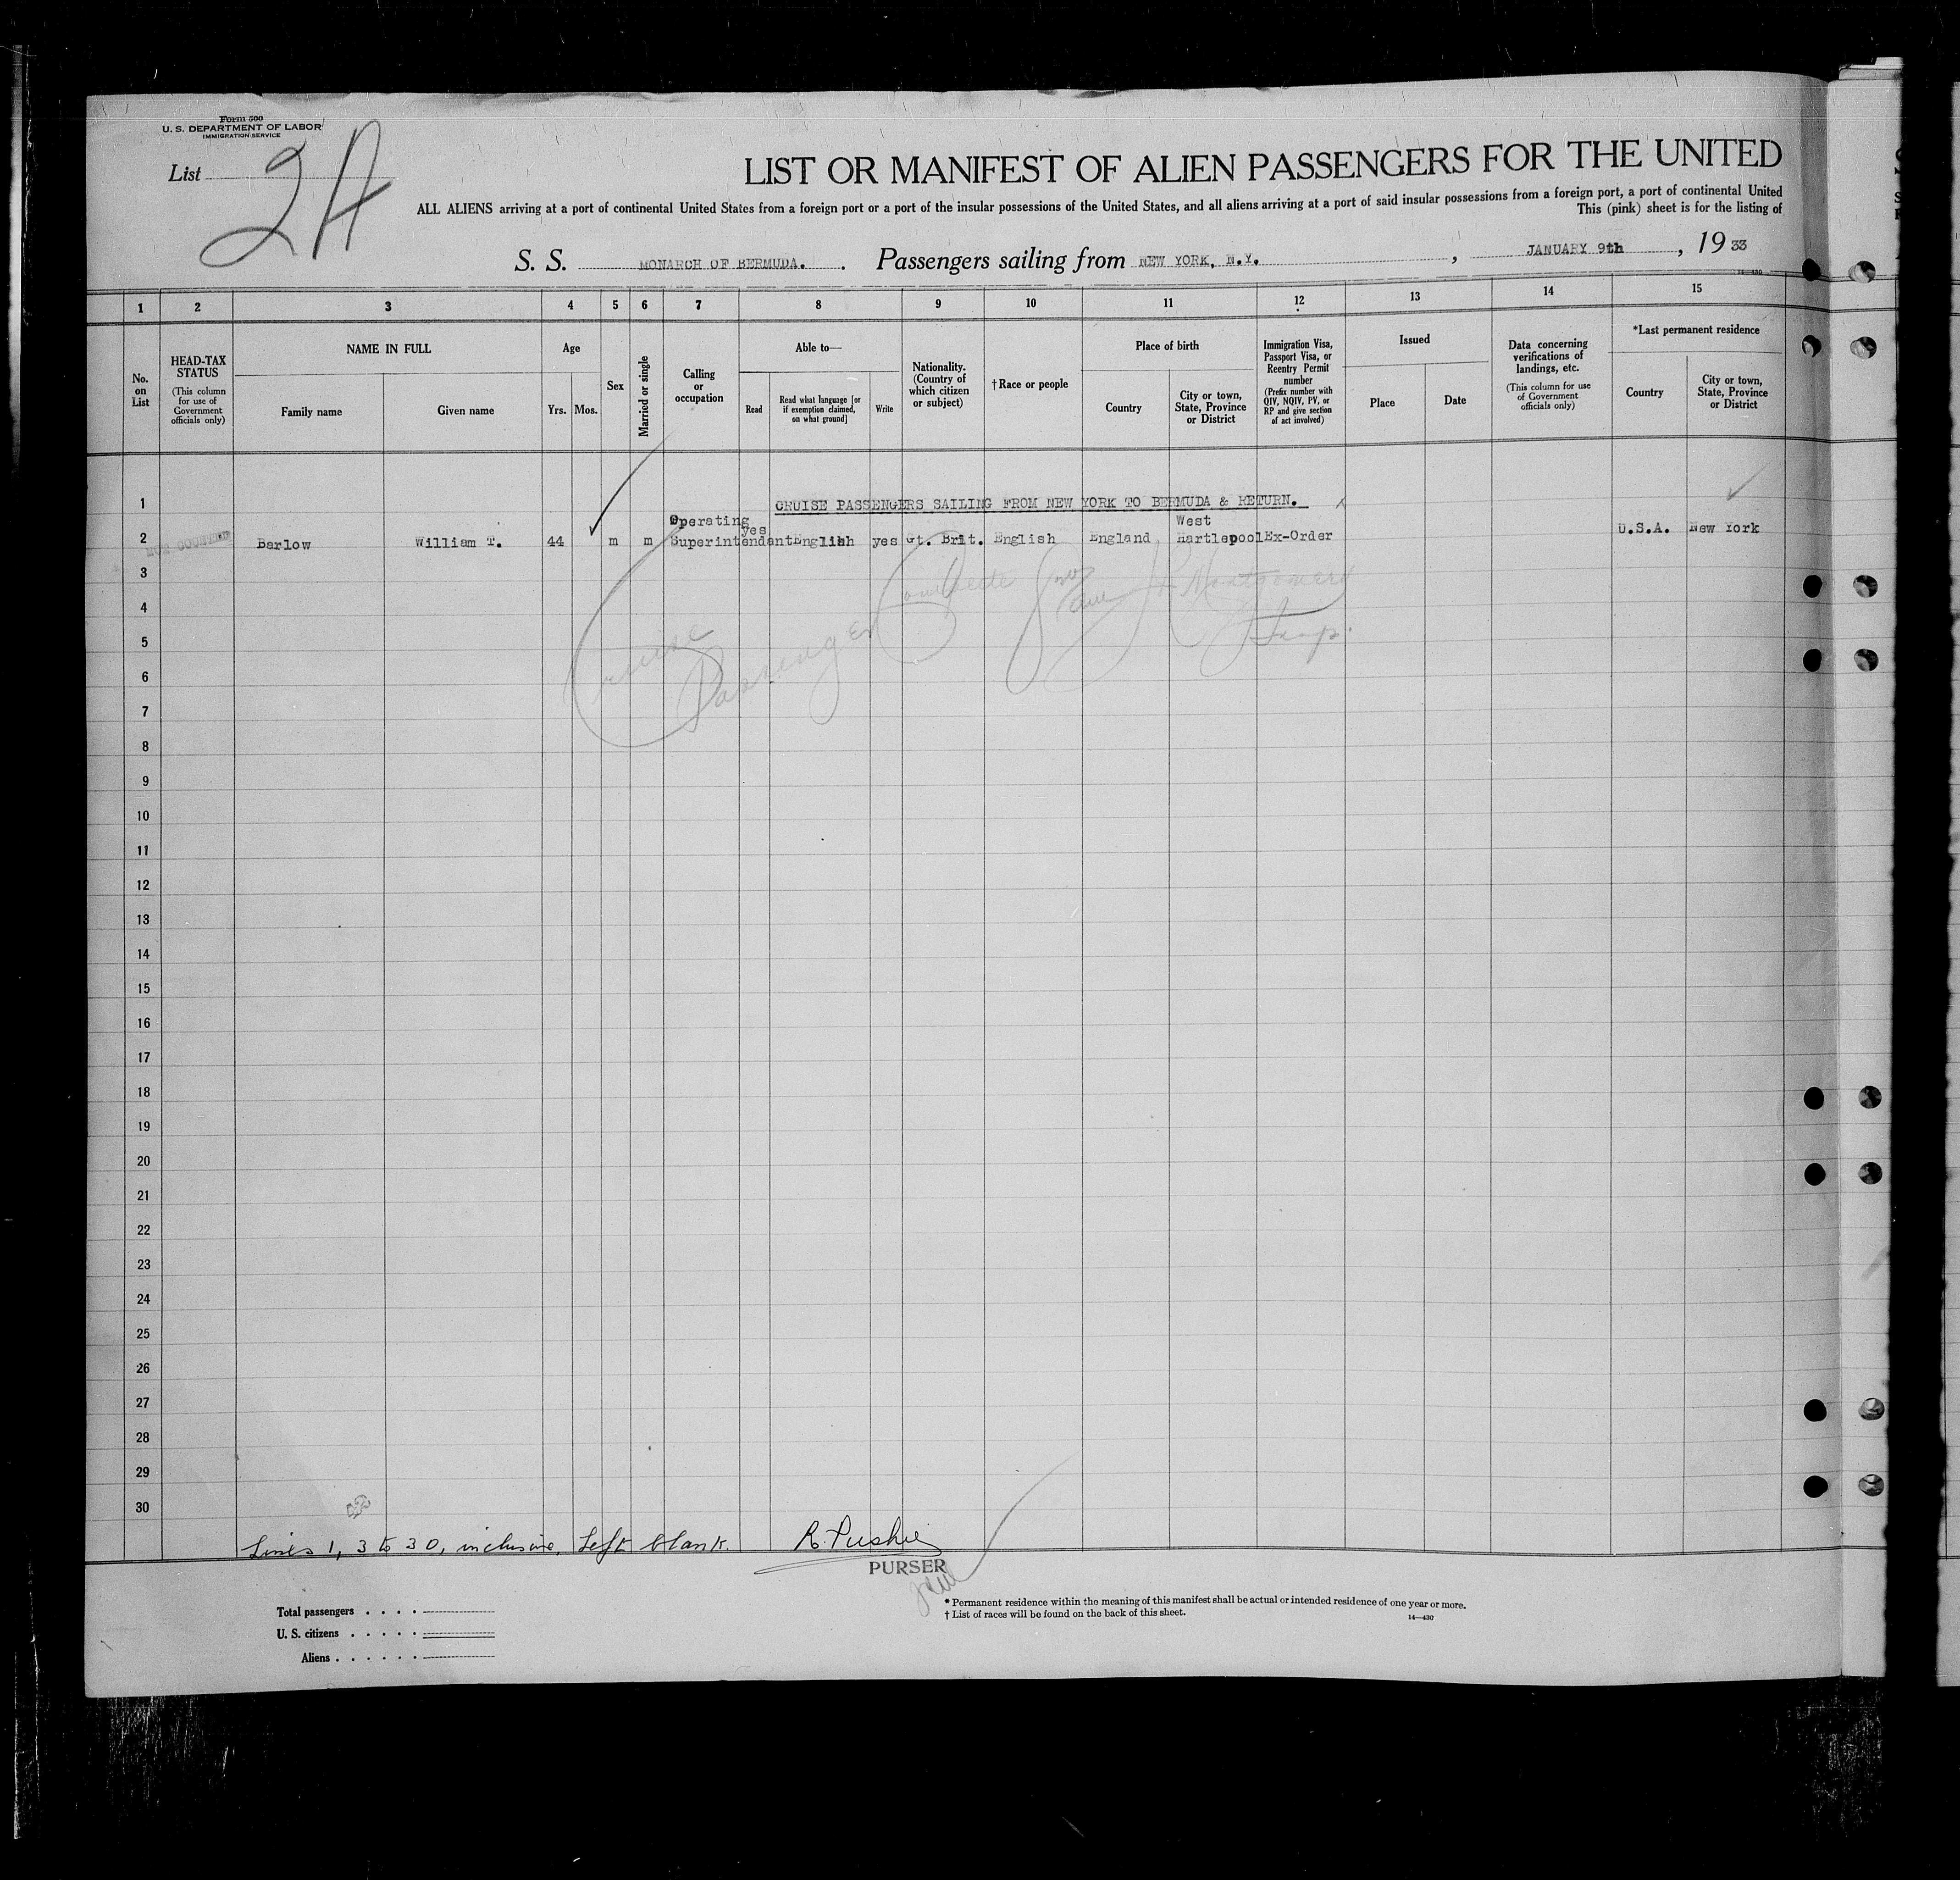 Form 500
U. S. DEPARTMENT OF LABOR
IMMIGRATION SERVICE
List 2A
LIST OR MANIFEST OF ALIEN PASSENGERS FOR THE UNITED
ALL ALIENS arriving at a port of continental United States from a foreign port or a port of the insular possessions of the United States, and all aliens arriving at a port of said insular possessions from a foreign port, a port of continental United
This (pink) sheet is for the listing of
S. S. MONARCH OF BERMUDA. . Passengers sailing from NEW YORK, N.Y. , JANUARY 9th , 19 33
14—430
1 2 3 4 5 6 7 8 9 10 11 12 13 14 15
No. on List
HEAD-TAX STATUS
(This column for use of Government officials only)
NAME IN FULL
Family name
Given name
Age
Yrs. Mos.
Sex
Married or single
Calling or occupation
Able to—
Read
Read what language [or if exemption claimed, on what ground]
Write
Nationality. (Country of which citizen or subject)
†Race or people
Place of birth
Country
City or town, State, Province or District
Immigration Visa, Passport Visa, or Reentry Permit number
(Prefix number with QIV, NQIV, PV, or RP and give section of act involved)
Issued
Place
Date
Data concerning verifications of landings, etc.
(This column for use of Government officials only)
*Last permanent residence
Country
City or town, State, Province or District
1 CRUISE PASSENGERS SAILING FROM NEW YORK TO BERMUDA & RETURN.
2 NOT COUNTED Barlow William T. 44 m m Operating Superintendant yes English yes Gt. Brit. English England West Hartlepool Ex-Order U.S.A. New York
3
4
5
6
7
8
9
10
11
12
13
14
15
16
17
18
19
20
21
22
23
24
25
26
27
28
29
30
Cruise
Passenger
Montgomery
Insp.
Lines 1, 3 to 30, inclusive, left blank.
PURSER
Total passengers
U. S. citizens
Aliens
* Permanent residence within the meaning of this manifest shall be actual or intended residence of one year or more.
† List of races will be found on the back of this sheet.
14—430